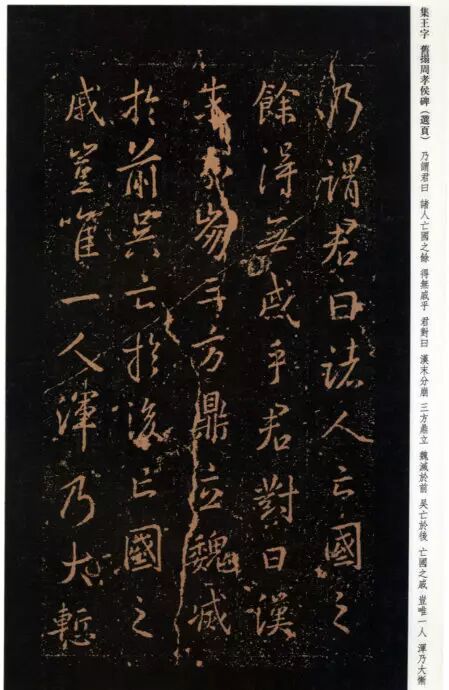 集王字 舊搨周孝侯碑（選頁） 乃謂君曰 諸人亡國之餘 得無戚乎 君對曰 漢末分崩 三方鼎立 魏滅於前 吳亡於後 亡國之戚 豈唯一人 渾乃大慚
乃謂君曰諸人亡國之
餘得無戚乎君對曰漢
末分崩三方鼎立魏滅
於前吳亡於後亡國之
戚豈唯一人渾乃大慙